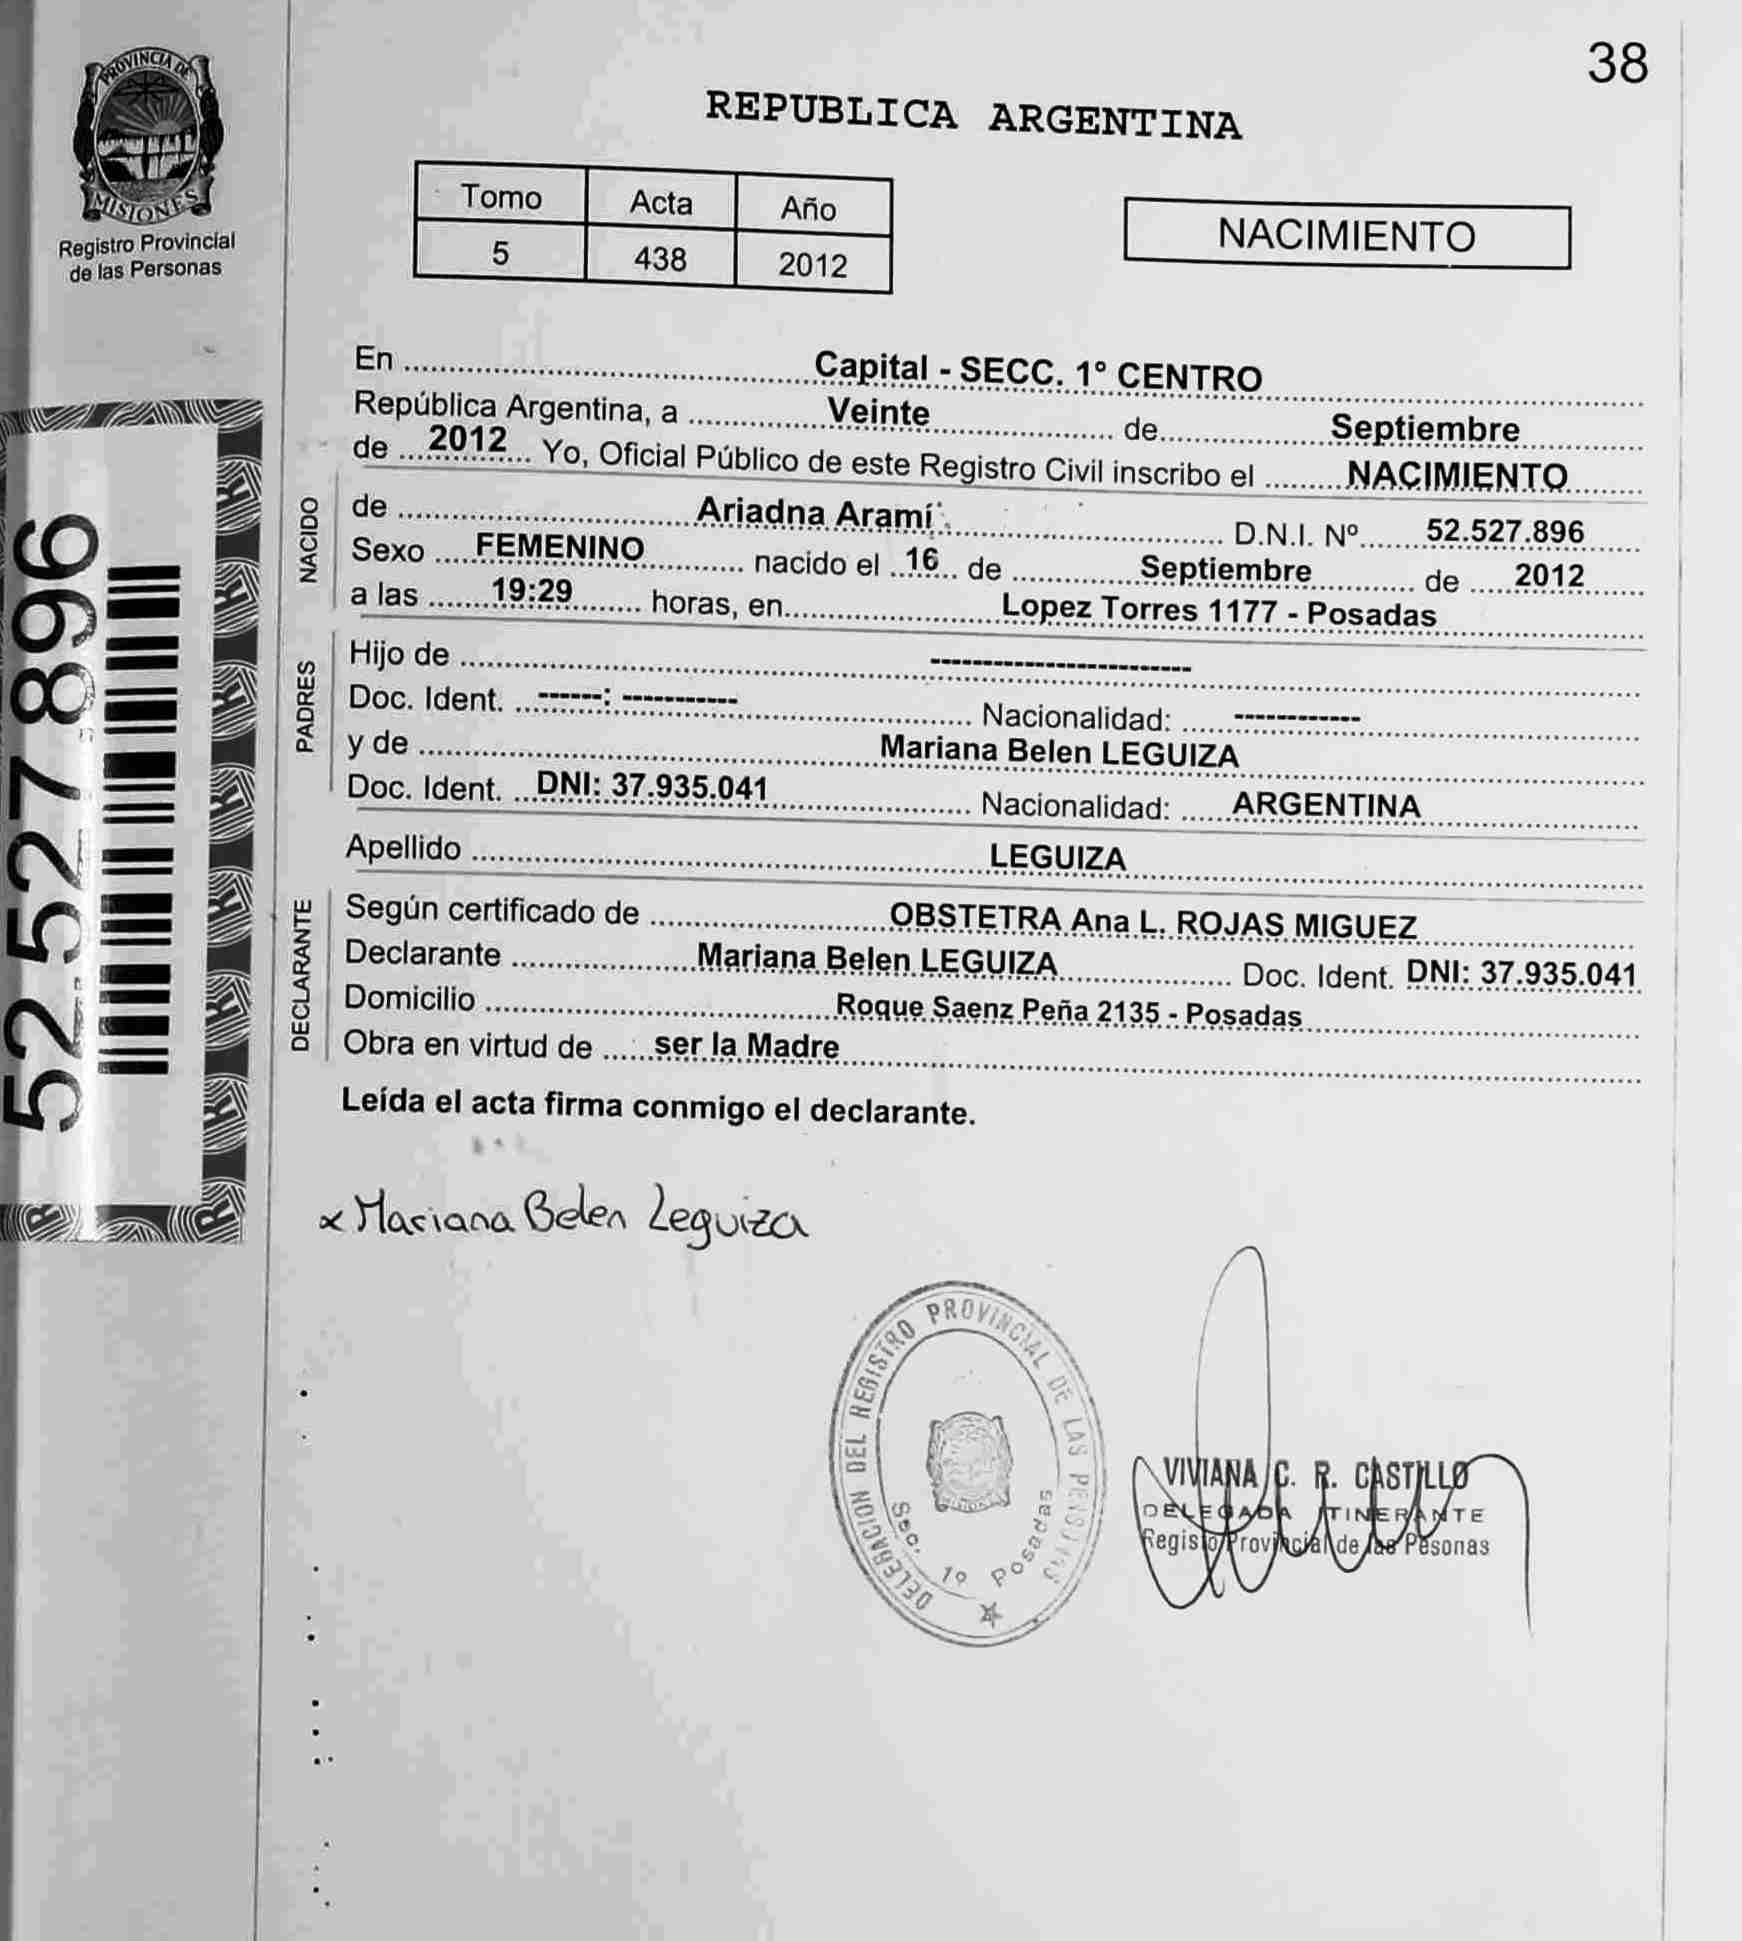 38
PROVINCIA DE
MISIONES
Registro Provincial
de las Personas
REPUBLICA ARGENTINA
Tomo Acta Año
5 438 2012
NACIMIENTO
En Capital - SECC. 1° CENTRO
República Argentina, a Veinte de Septiembre
de 2012 Yo, Oficial Público de este Registro Civil inscribo el NACIMIENTO
NACIDO
de Ariadna Aramí D.N.I. Nº 52.527.896
Sexo FEMENINO nacido el 16 de Septiembre de 2012
a las 19:29 horas, en Lopez Torres 1177 - Posadas
PADRES
Hijo de -------------------------
Doc. Ident. ------: ----------- Nacionalidad: ------------
y de Mariana Belen LEGUIZA
Doc. Ident. DNI: 37.935.041 Nacionalidad: ARGENTINA
Apellido LEGUIZA
DECLARANTE
Según certificado de OBSTETRA Ana L. ROJAS MIGUEZ
Declarante Mariana Belen LEGUIZA Doc. Ident. DNI: 37.935.041
Domicilio Roque Saenz Peña 2135 - Posadas
Obra en virtud de ser la Madre
Leída el acta firma conmigo el declarante.
52.527.896
x Mariana Belen Leguiza
DELEGACION DEL REGISTRO PROVINCIAL DE LAS PERSONAS
Sec. 1º Posadas
VIVIANA C. R. CASTILLO
DELEGADA ITINERANTE
Registo Provincial de las Pesonas